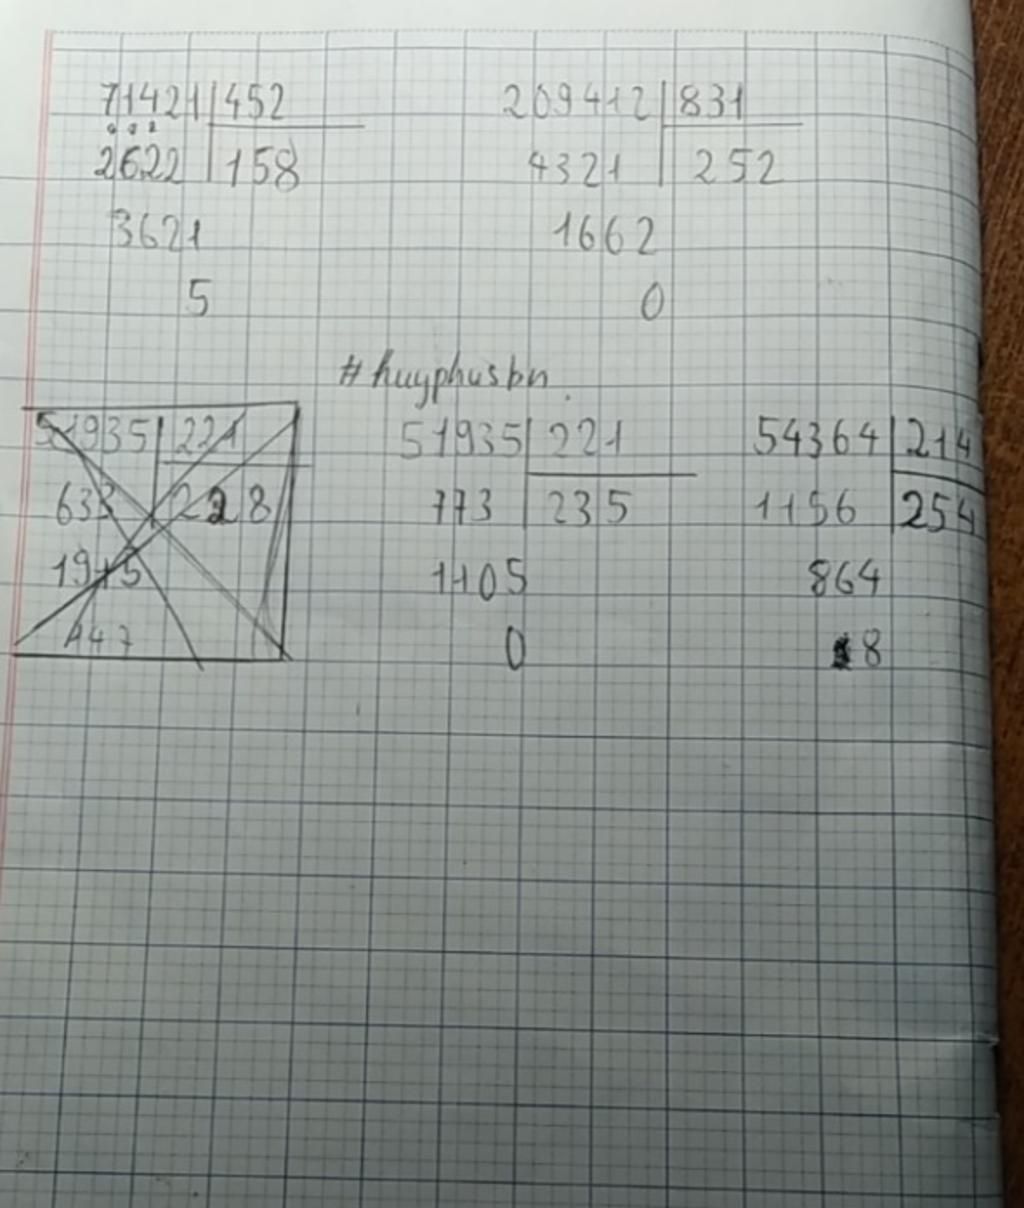 71421 452
2622 158
3621
5
209412 831
4321 252
1662
0
#huyphusbn
51935 221
633 228
1915
147
51935 221
773 235
1105
0
54364 214
1156 254
864
8